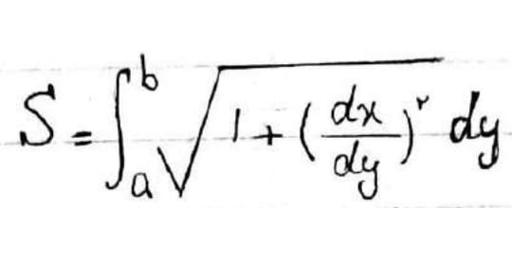 S = ∫_a^b √(1 + (dx/dy)^2) dy